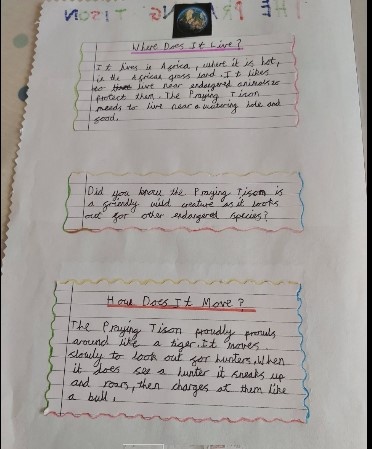 THE PRAYING TISON
Where Does It Live?
It lives in Africa, where it is hot,
in the African grass land. It likes
to live near endangered animals to
protect them. The Praying Tison
needs to live near a watering hole and
food.
Did you know the Praying Tison is
a friendly wild creature as it looks
out for other endangered species?
How Does It Move?
The Praying Tison proudly prowls
around like a tiger. It moves
slowly to look out for hunters. When
it does see a hunter it sneaks up
and roars, then charges at them like
a bull.